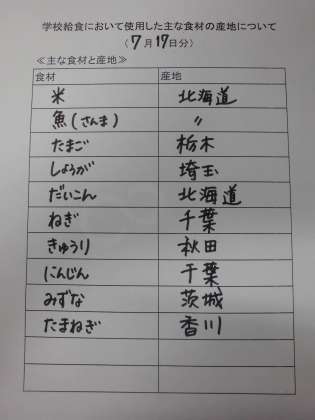 学校給食において使用した主な食材の産地について
（7月17日分）
≪主な食材と産地≫
食材 産地
米 北海道
魚(さんま) 〃
たまご 栃木
しょうが 埼玉
だいこん 北海道
ねぎ 千葉
きゅうり 秋田
にんじん 千葉
みずな 茨城
たまねぎ 香川